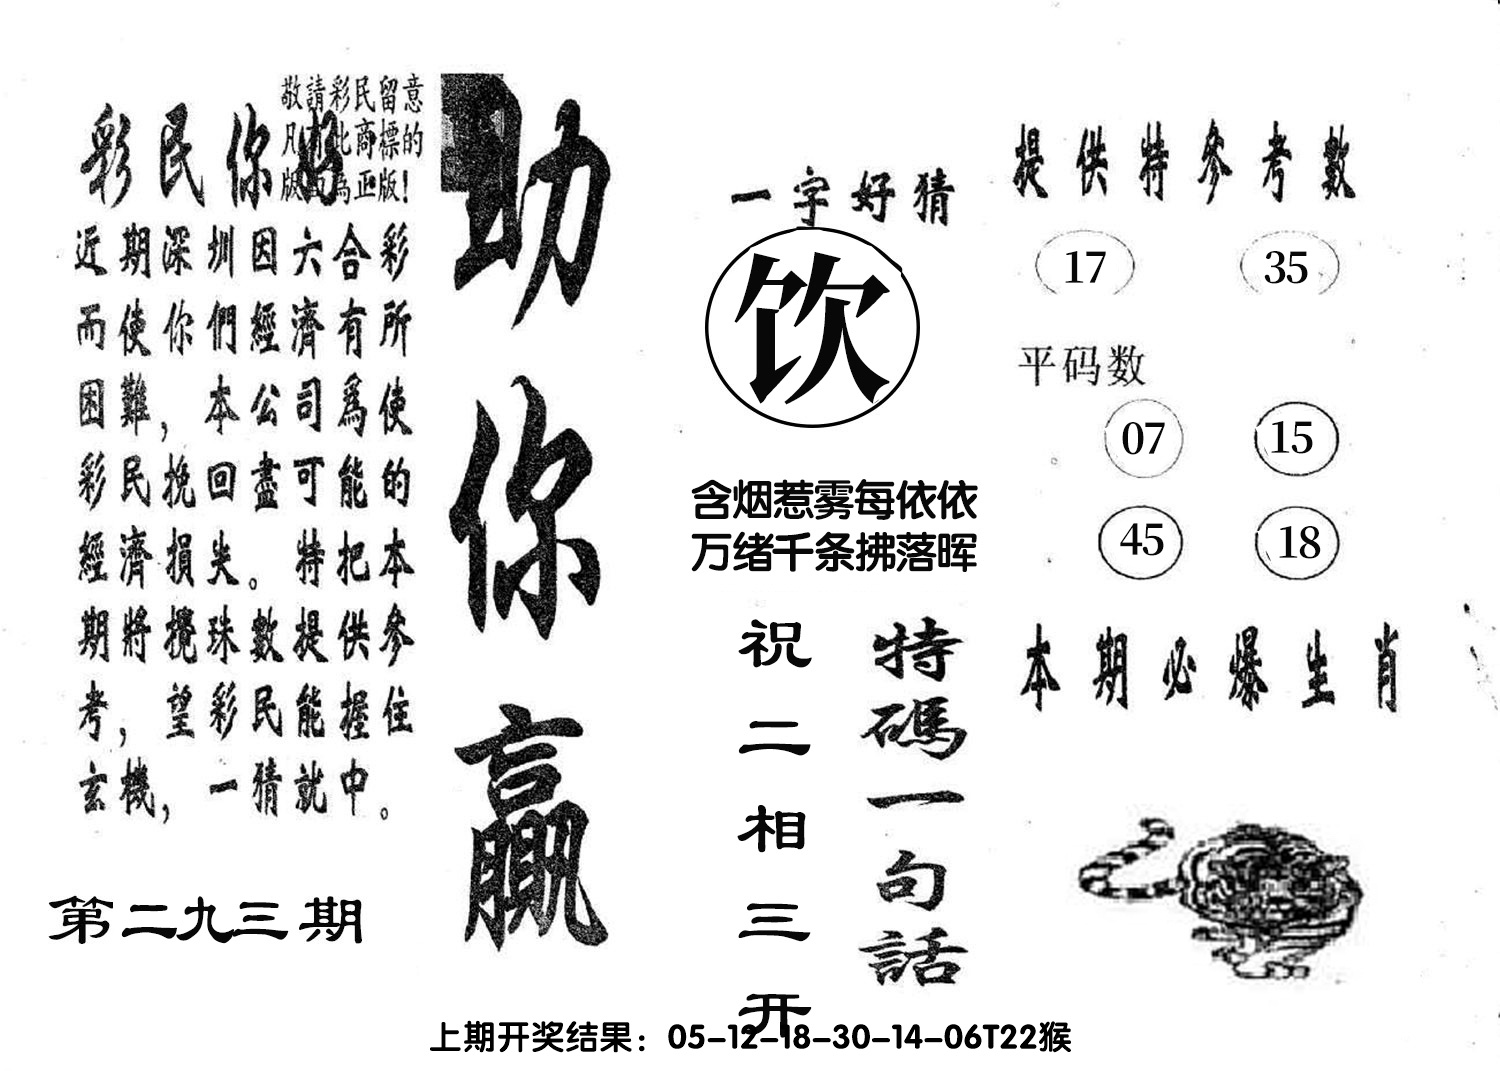 敬請彩民留意
凡有此商標的
版面為正版！
彩民你好
近期深圳因六合彩
而使你們經濟有所
困難，本公司爲使
彩民挽回盡可能的
經濟損失。特把本
期將攪珠數提供參
考，望彩民能握住
玄機，一猜就中。
第二九三期
助你贏
一字好猜
饮
含烟惹雾每依依
万绪千条拂落晖
特碼一句話
祝二相三开
提供特參考數
17 35
平码数
07 15
45 18
本期必爆生肖
上期开奖结果：05-12-18-30-14-06T22猴